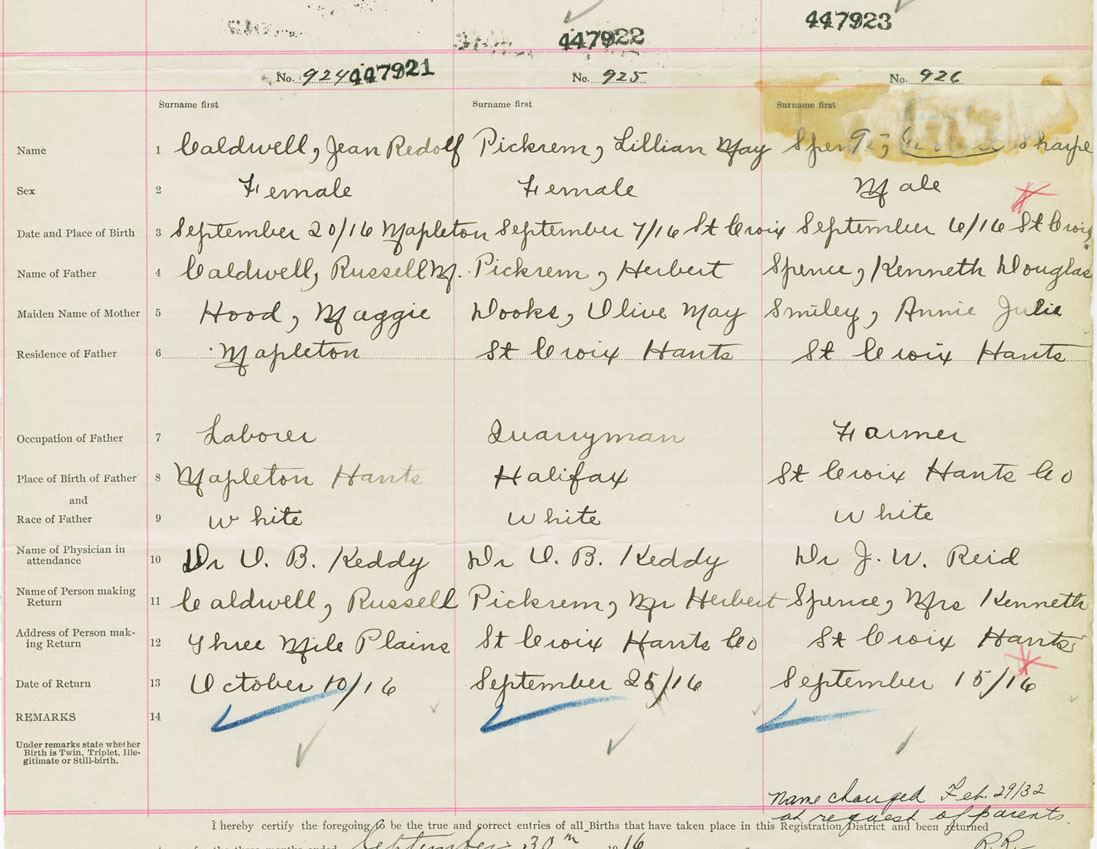 447922
447923
No. 924 447921
No. 925
No. 926
Surname first
Surname first
Surname first
Name 1 Caldwell, Jean Redolf Pickrem, Lillian May Spence, Sharpe
Sex 2 Female Female Male
Date and Place of Birth 3 September 20/16 Mapleton September 7/16 St Croix September 6/16 St Croix
Name of Father 4 Caldwell, Russell M. Pickrem, Herbert Spence, Kenneth Douglas
Maiden Name of Mother 5 Hood, Maggie Dooks, Olive May Smiley, Annie Julie
Residence of Father 6 Mapleton St Croix Hants St Croix Hants
Occupation of Father 7 Laborer Quarryman Farmer
Place of Birth of Father 8 Mapleton Hants Halifax St Croix Hants Co
and
Race of Father 9 White White White
Name of Physician in
attendance 10 Dr O. B. Keddy Dr O. B. Keddy Dr J. W. Reid
Name of Person making
Return 11 Caldwell, Russell Pickrem, Mr Herbert Spence, Mrs Kenneth
Address of Person mak-
ing Return 12 Three Mile Plains St Croix Hants Co St Croix Hants
Date of Return 13 October 10/16 September 25/16 September 15/16
REMARKS 14
Under remarks state whether
Birth is Twin, Triplet, Ille-
gitimate or Still-birth.
Name changed Feb. 29/32
at request of parents.
R.R.
I hereby certify the foregoing to be the true and correct entries of all Births that have taken place in this Registration District and been returned
for the three months ended September 30th 1916